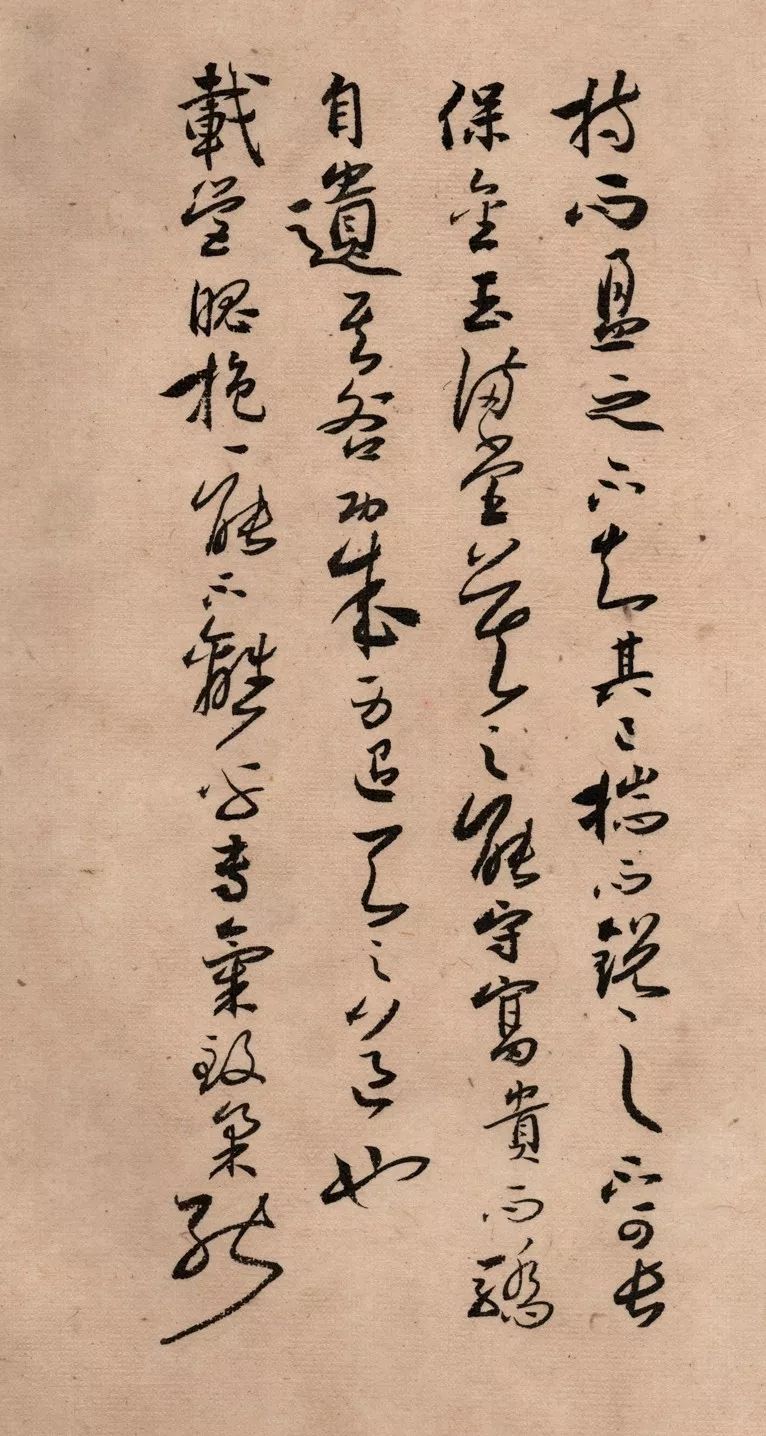 持而盈之不知其已揣而銳之不可長
保金玉滿堂莫之能守富貴而驕
自遺其咎功成身退天之道也
載營魄抱一能不離乎專氣致柔能